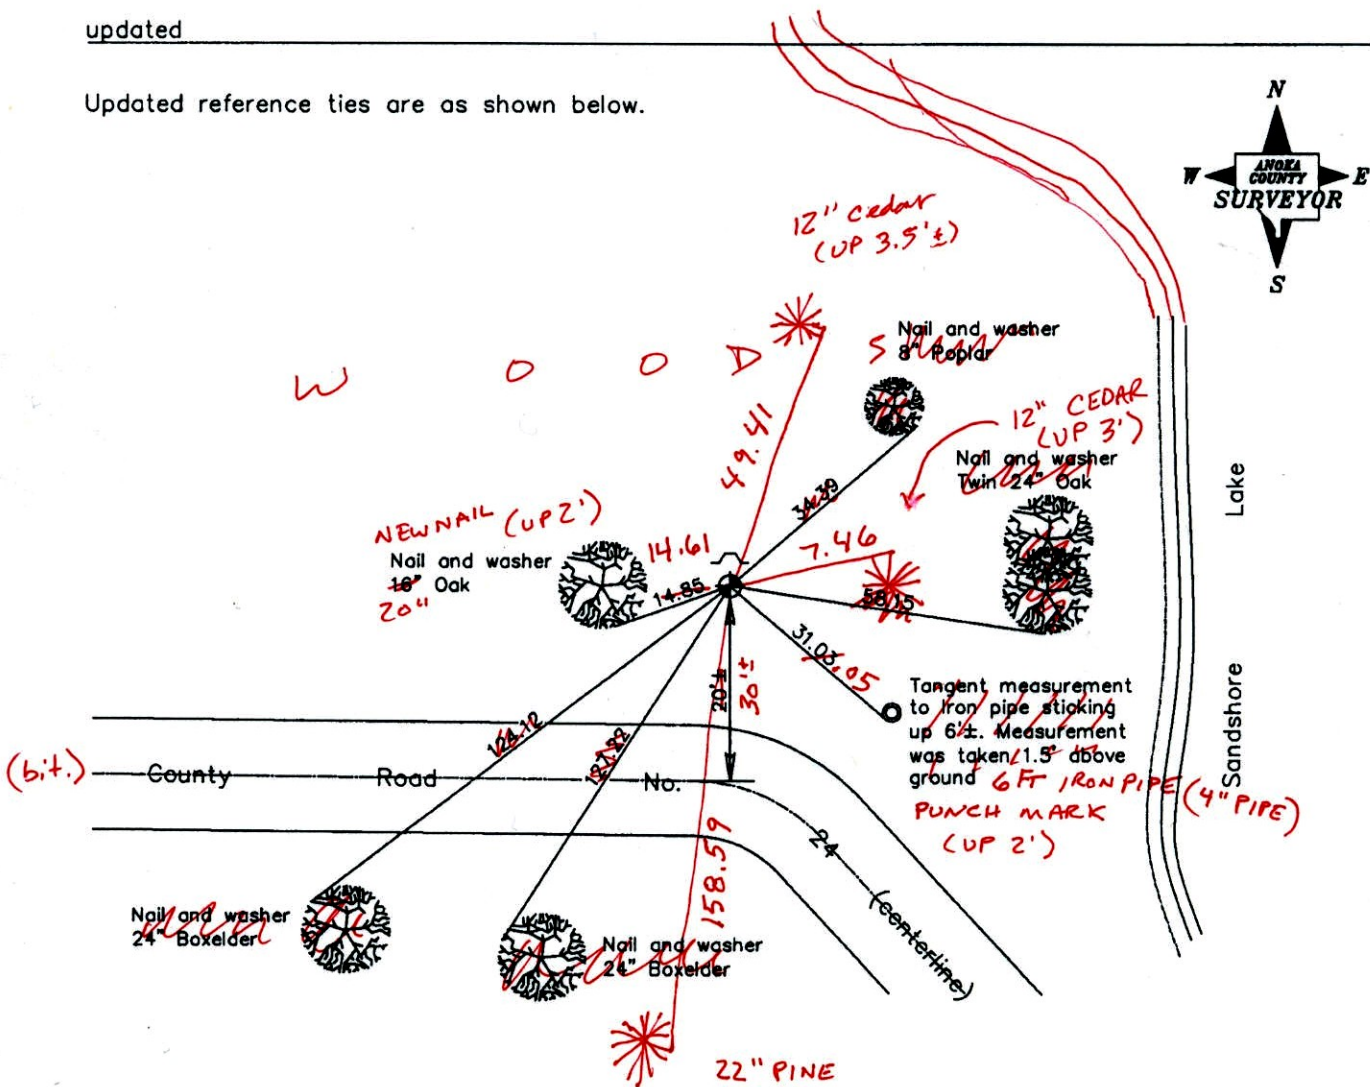 updated
Updated reference ties are as shown below.
N
W
ANOKA
COUNTY
SURVEYOR
E
S
12" cedar
(UP 3.5'±)
Nail and washer
8" Poplar
W O O D S
12" CEDAR
(UP 3')
49.41
34.39
Nail and washer
Twin 24" Oak
Lake
NEW NAIL (UP 2')
Nail and washer
16" Oak
20"
14.61
14.85
7.46
58.15
31.03
.05
20'±
30'±
Tangent measurement
to Iron pipe sticking
up 6'±. Measurement
was taken 1.5' above
ground
6 FT IRON PIPE (4" PIPE)
PUNCH MARK
(UP 2')
Sandshore
124.12
127.22
(bit.)
County Road No. 24 (centerline)
158.59
Nail and washer
24" Boxelder
Nail and washer
24" Boxelder
22" PINE